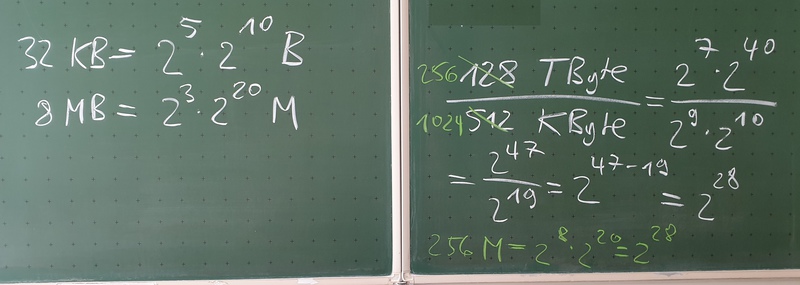 32 KB = 2^5 · 2^10 B
8 MB = 2^3 · 2^20 M
256 128 TByte
1024 512 KByte
= 2^7 · 2^40 / 2^9 · 2^10
= 2^47 / 2^19 = 2^47-19 = 2^28
256 M = 2^8 · 2^20 = 2^28